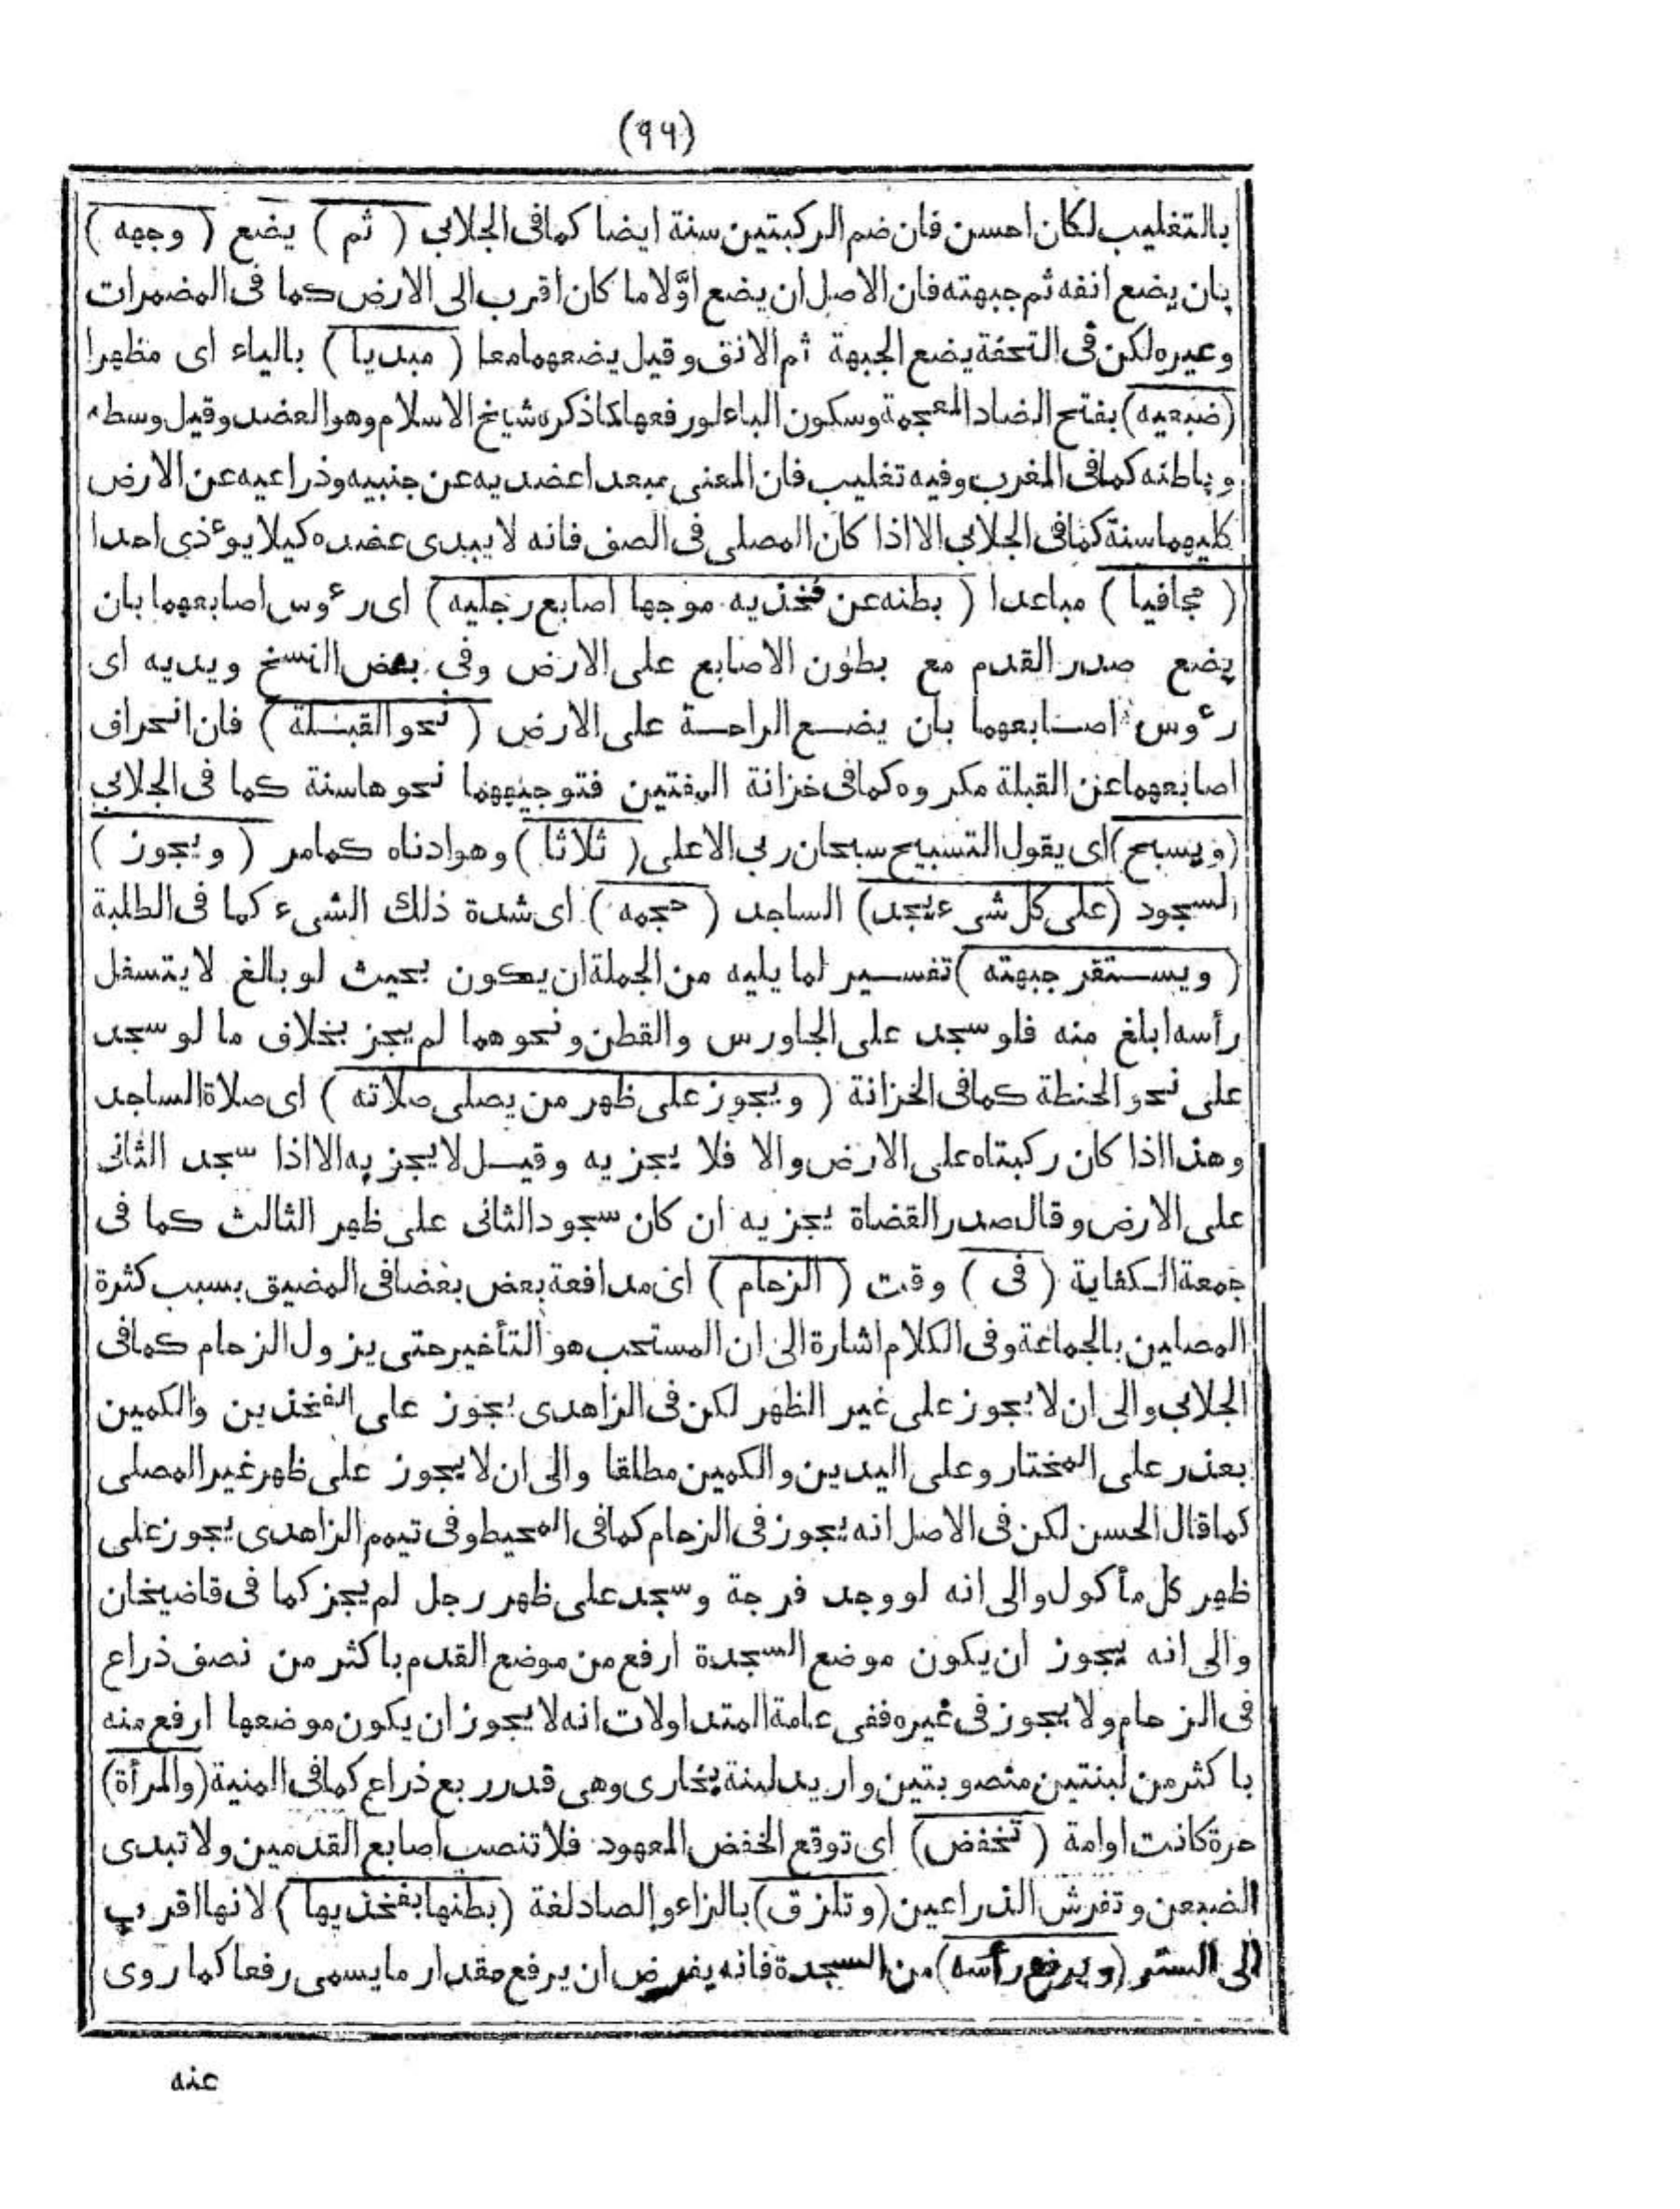 (٩٦)
بالتغليب لكان احسن فان ضم الركبتين سنة ايضا كما فى الجلابى ( ثم ) يضع ( وجهه )
بان يضع انفه ثم جبهته فان الاصل ان يضع اوّلا ما كان اقرب الى الارض كما فى المضمرات
وغيره لكن فى التحفة يضع الجبهة ثم الانف وقيل يضعهما معا ( مبديا ) بالياء اى مظهرا
(ضبعيه) بفتح الضاد المعجمة وسكون الباء لو رفعها كما ذكره شيخ الاسلام وهو العضد وقيل وسطه
وباطنه كما فى المغرب وفيه تغليب فان المعنى مبعدا عضديه عن جنبيه وذراعيه عن الارض
كليهما سنة كما فى الجلابى الا اذا كان المصلى فى الصف فانه لا يبدى عضده كيلا يوءذى احدا
( مجافيا ) مباعدا ( بطنه عن فخذيه موجها اصابع رجليه ) اى رءوس اصابعهما بان
يضع صدر القدم مع بطون الاصابع على الارض وفى بعض النسخ ويديه اى
رءوس اصابعهما بان يضع الراحة على الارض ( نحو القبلة ) فان انحراف
اصابعهما عن القبلة مكروه كما فى خزانة المفتين فتوجيههما نحوها سنة كما فى الجلابى
(ويسبح) اى يقول التسبيح سبحان ربى الاعلى ( ثلاثا ) وهو ادناه كما مر ( ويجوز )
السجود (على كل شىء يجد) الساجد ( حجمه ) اى شدة ذلك الشىء كما فى الطلبة
( ويستقر جبهته ) تفسير لما يليه من الجملة ان يكون بحيث لو بالغ لا يتسفل
رأسه ابلغ منه فلو سجد على الجاورس والقطن ونحوهما لم يجز بخلاف ما لو سجد
على نحو الحنطة كما فى الخزانة ( ويجوز على ظهر من يصلى صلاته ) اى صلاة الساجد
وهذا اذا كان ركبتاه على الارض والا فلا يجزيه وقيل لا يجزيه الا اذا سجد الثانى
على الارض وقال صدر القضاة يجزيه ان كان سجود الثانى على ظهر الثالث كما فى
جمعة الكفاية ( فى ) وقت ( الزحام ) اى مدافعة بعض بعضا فى المضيق بسبب كثرة
المصلين بالجماعة وفى الكلام اشارة الى ان المستحب هو التأخير حتى يزول الزحام كما فى
الجلابى والى ان لا يجوز على غير الظهر لكن فى الزاهدى يجوز على الفخذين والكمين
بعذر على المختار وعلى اليدين والكمين مطلقا والى ان لا يجوز على ظهر غير المصلى
كما قال الحسن لكن فى الاصل انه يجوز فى الزحام كما فى المحيط وفى تيمم الزاهدى يجوز على
ظهر كل مأكول والى انه لو وجد فرجة وسجد على ظهر رجل لم يجز كما فى قاضيخان
والى انه يجوز ان يكون موضع السجدة ارفع من موضع القدم باكثر من نصف ذراع
فى الزحام ولا يجوز فى غيره ففى عامة المتداولات انه لا يجوز ان يكون موضعها ارفع منه
باكثر من لبنتين منصوبتين واريد لبنة بخارى وهى قدر ربع ذراع كما فى المنية (والمرأة)
حرة كانت او امة ( تخفض ) اى توقع الخفض المعهود فلا تنصب اصابع القدمين ولا تبدى
الضبعين وتفرش الذراعين (وتلزق) بالزاء والصاد لغة (بطنها بفخذيها ) لانها اقرب
الى الستر (ويرفع رأسه) من السجدة فانه يفرض ان يرفع مقدار ما يسمى رفعا كما روى
عنه